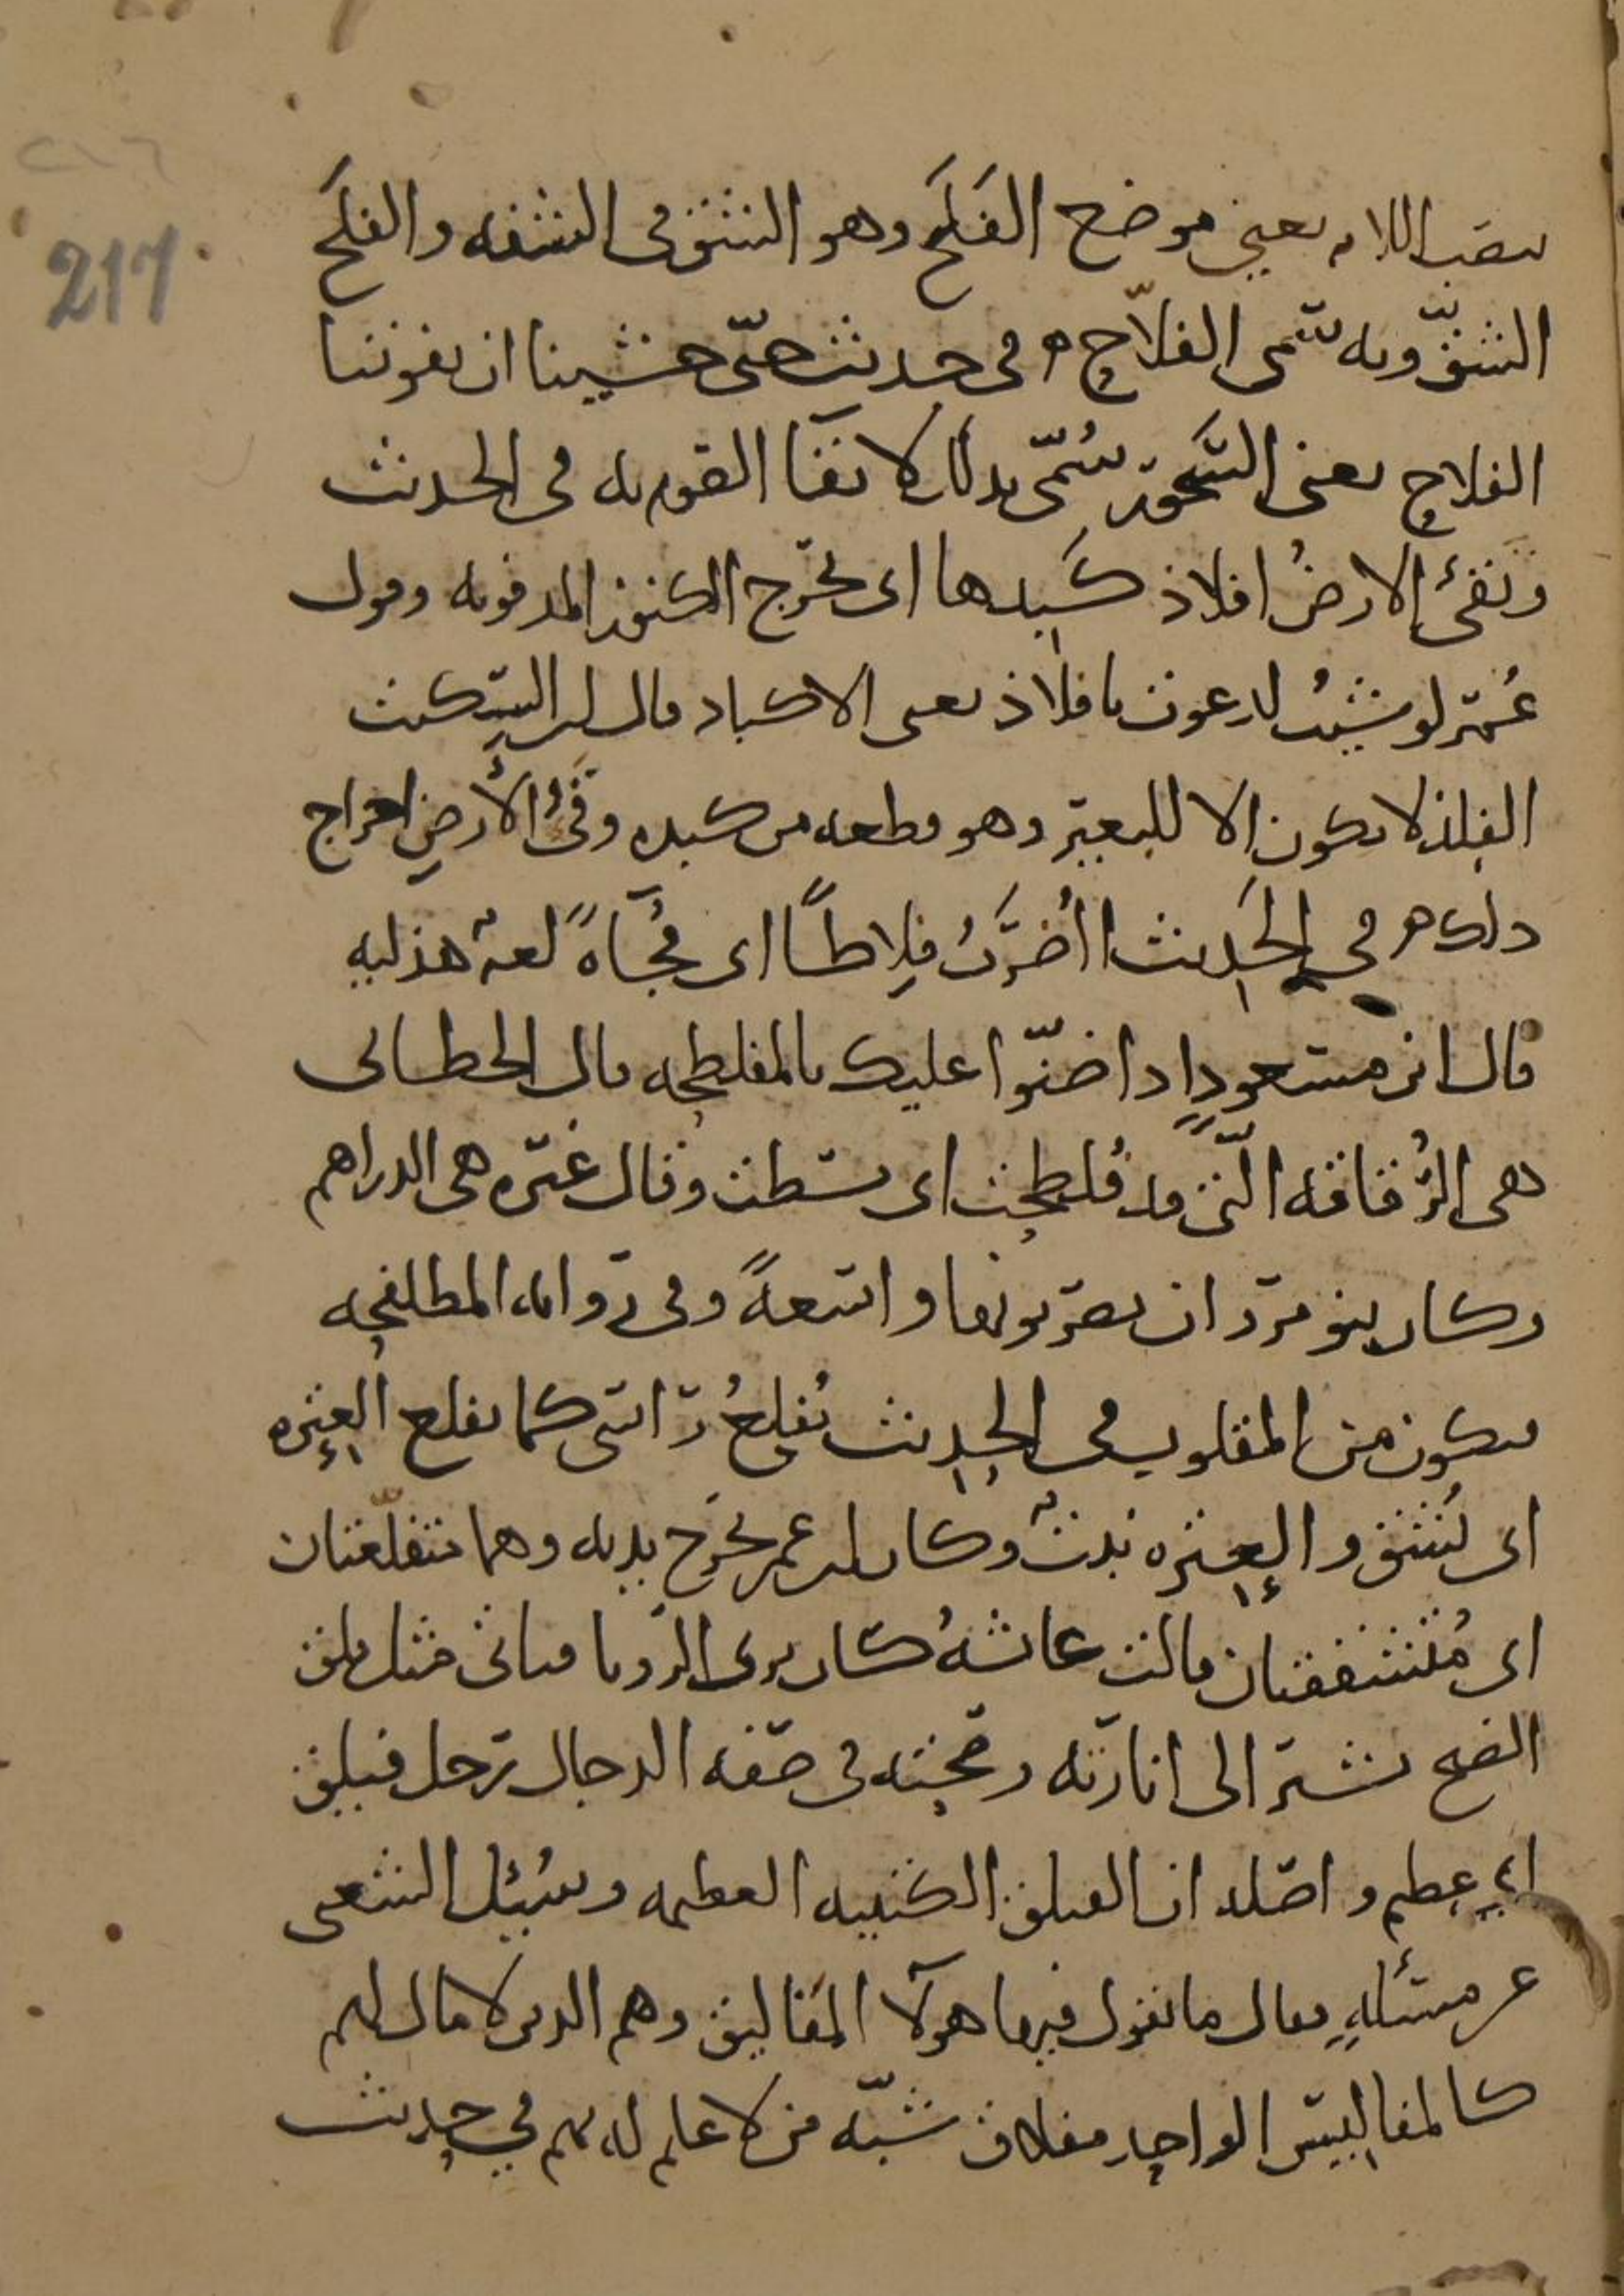 ٢١٦
217
بنصب اللام يعني موضع الفَلَح وهو الشق في الشفه والفلَح
الشقّ وبه سمّى الفلّاح ه في حديث حتى خشينا ان يفوتنا
الفلاح يعنى السَّحور سُمّى بذلك لانّ بقآ القوم به في الحديث
وتقئ الارضُ افلاذ كَبِدها اى تخرج الكنوز المدفونه وقول
عُمَر لو شيتُ لدعوت بافلاذ يعنى الاكباد قال ابن السِّكيت
الفِلذ لا يكون الا للبعير وهو قطعه من كبده وقَئُ الأرضِ اخراج
ذلك ه في الحَدِيث أأُضرَبُ فِلِاطًا اى فُجَآةً لغةٌ هذليه
قال ابن مسعودٍ اذا ضنّوا عليك بالمفلطحه قال الخطابى
هى الرُّقاقه الّتى قد فُلطِحت اى بسطت وقال غيره هى الدراهم
وكان بنو مروان يضربونها واسعةً وفى روايه المطلفحه
فيكون من المقلوب في الحديث يُفلغُ رأسى كما يفلع العِتره
اى يُشَقّ والعِتره نبتٌ وكان ابن عمر يخرج يديه وهما متفلّعتان
اى مُتشققتان قالت عائشهُ كان يرى الرُّويا فتاتى مثل فلق
الصبح تشير الى انارته وصحته في صفه الدجال رجل فيلق
اى عظيم واصله ان الفيلق الكتيبه العظيمه وسُئل الشعبى
عن مسئلهٍ فقال ما يقول فيها هولآ المَفاليق وهم الذين لا مال لهم
كالمفاليس الواحد مفلاق شبّه من لا علم له بهم في حديث